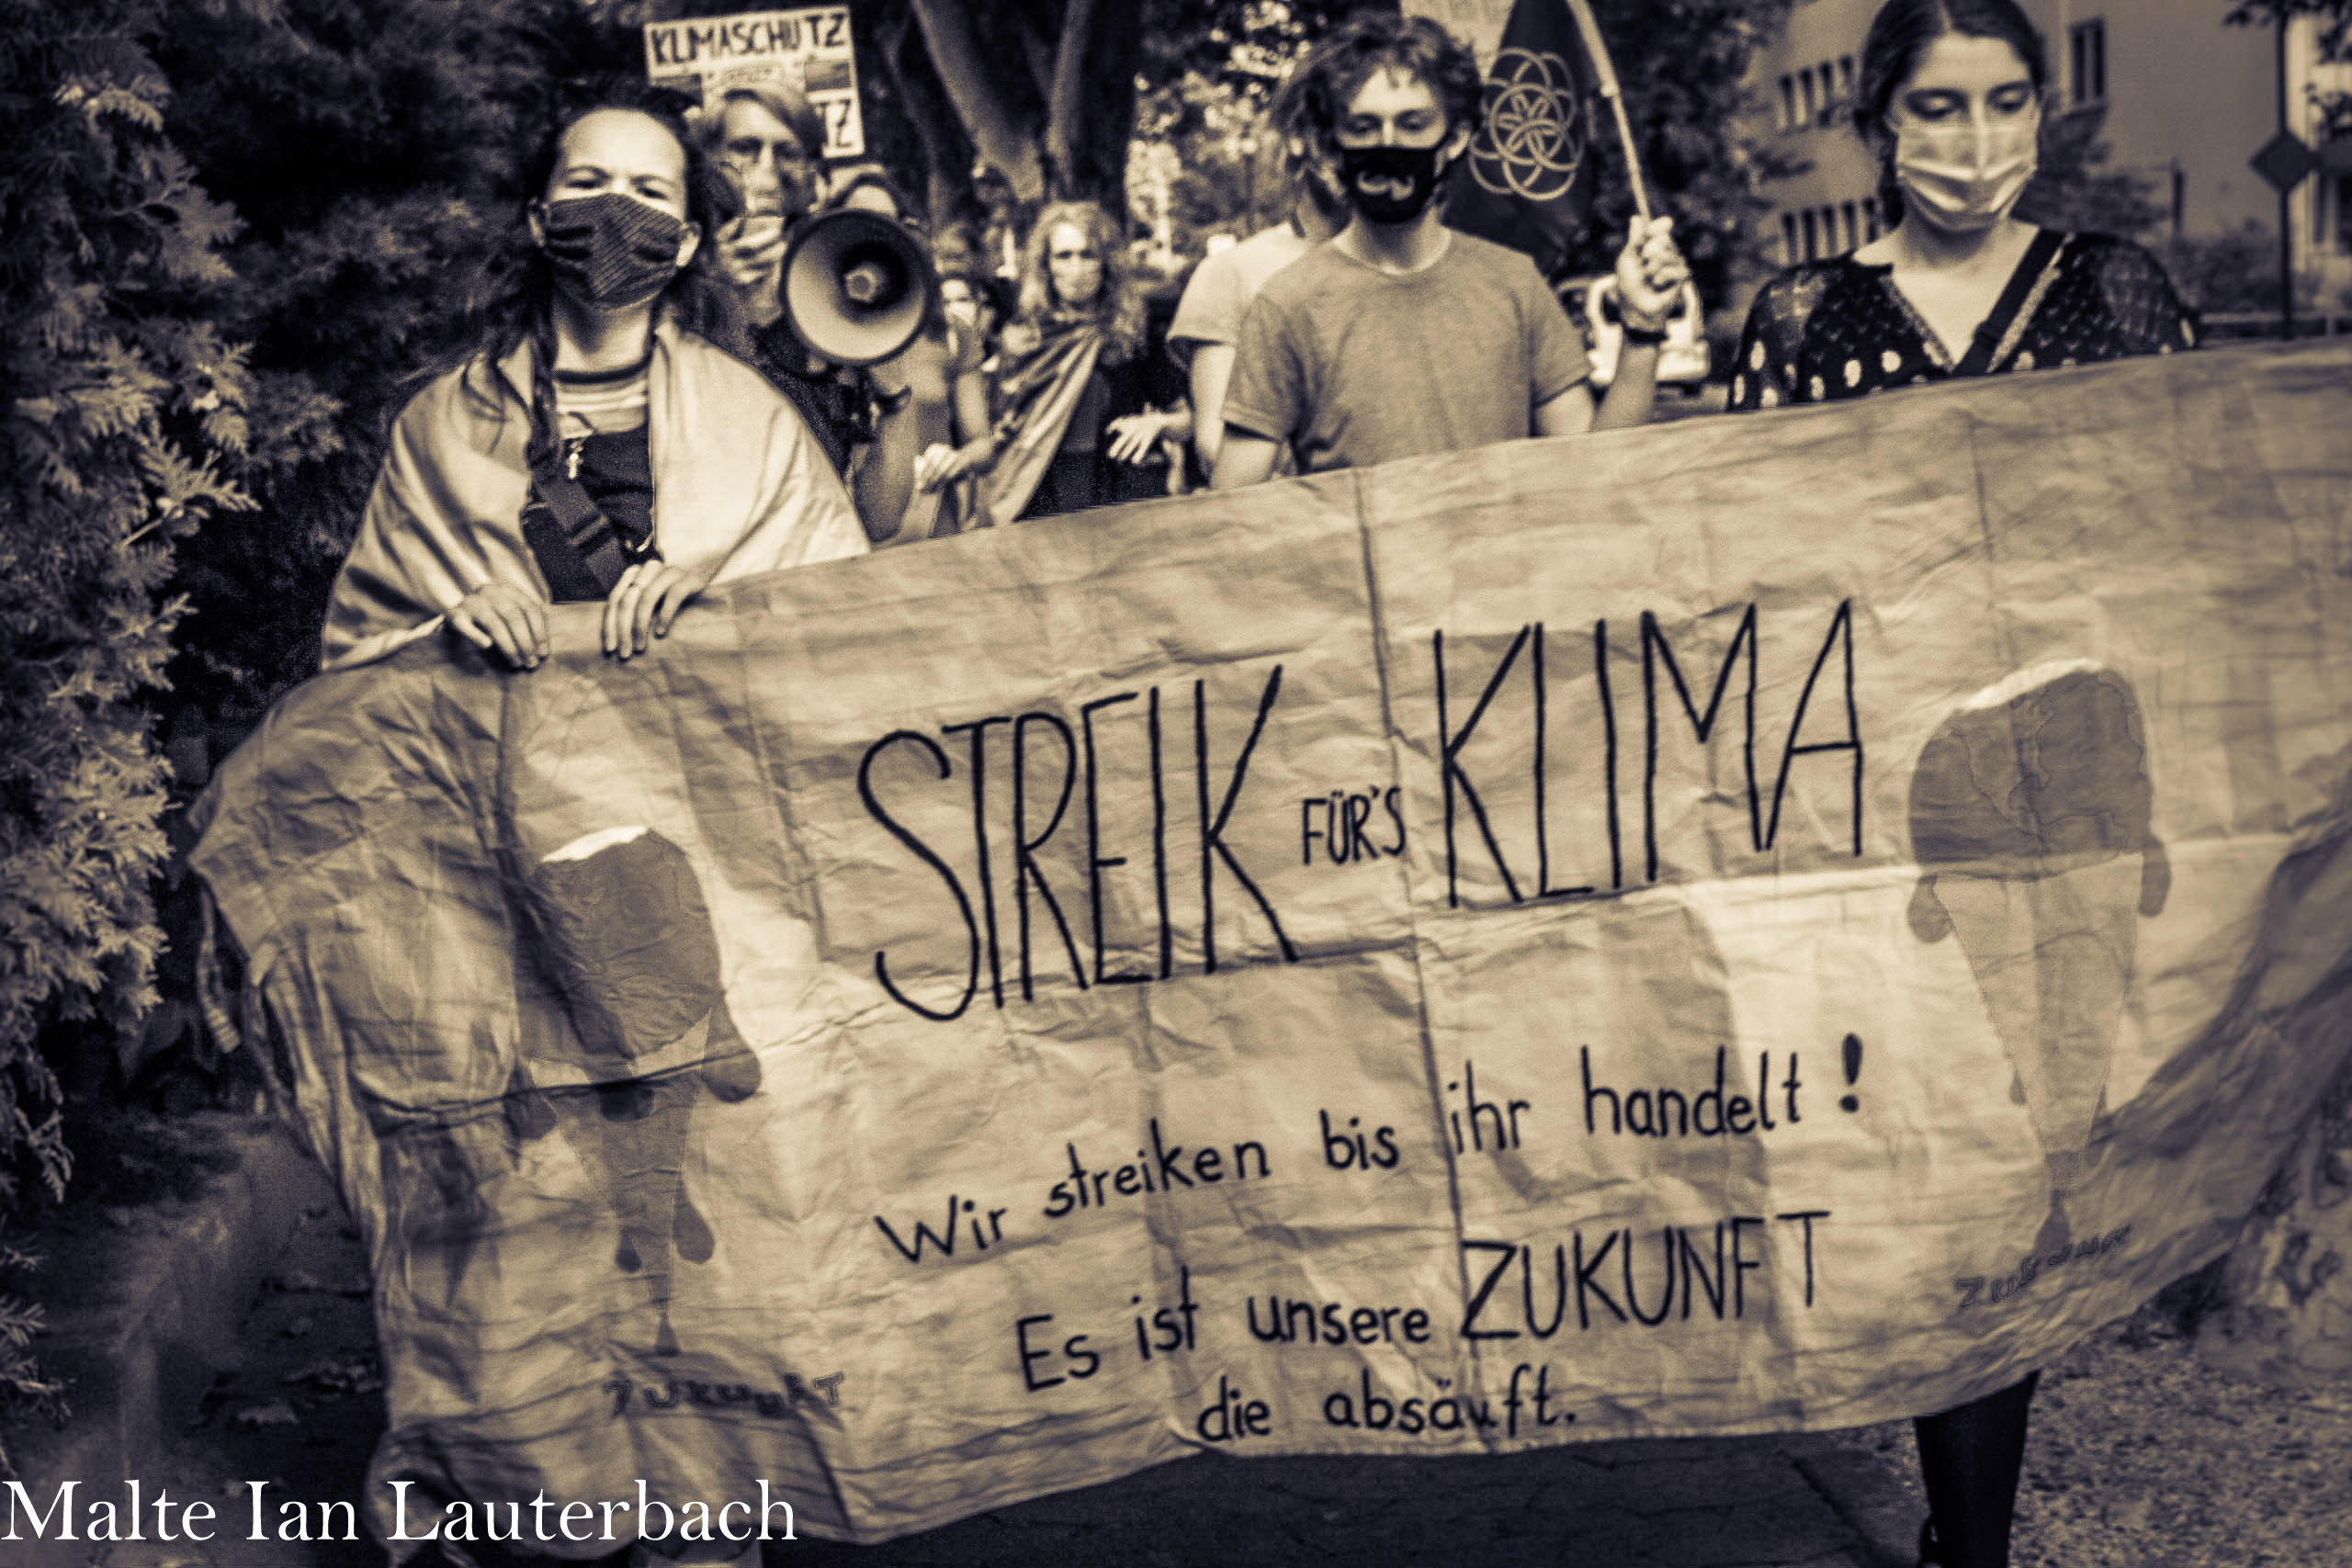 KLIMASCHUTZ
STREIK FÜR'S KLIMA
Wir streiken bis ihr handelt!
Es ist unsere ZUKUNFT
die absäuft.
ZUKUNFT
Malte Ian Lauterbach